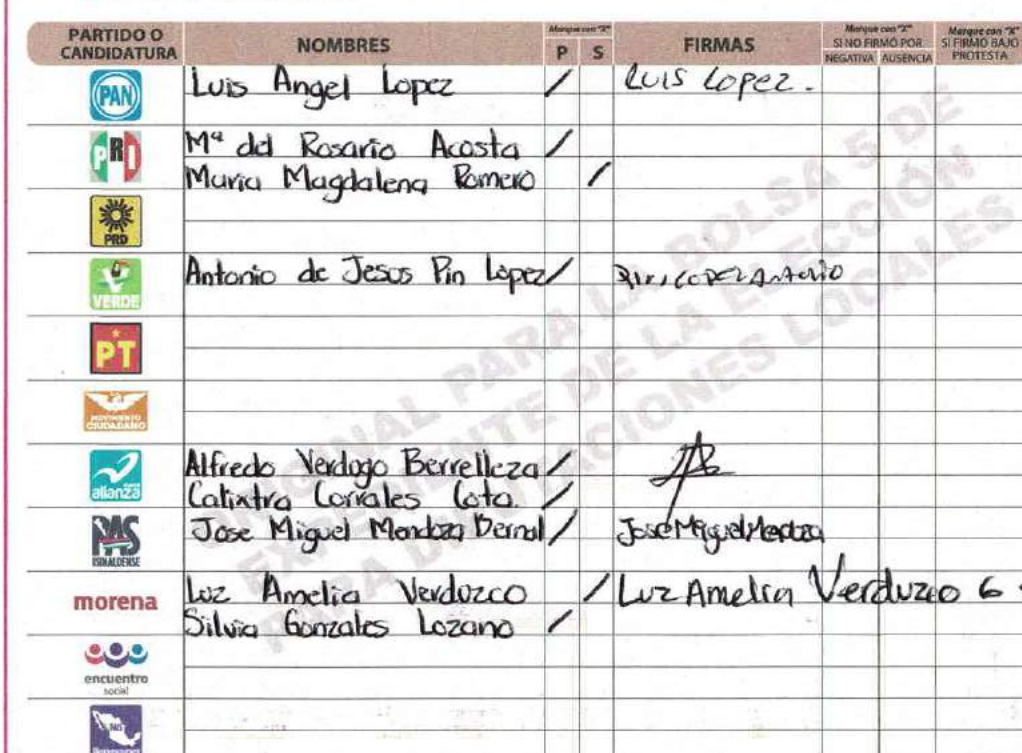 PARTIDO O CANDIDATURA NOMBRES Marque con "X" P S FIRMAS Marque con "X" SI NO FIRMÓ POR NEGATIVA AUSENCIA Marque con "X" SI FIRMÓ BAJO PROTESTA
PAN Luis Angel Lopez / Luis Lopez.
PRI Mª del Rosario Acosta /
Maria Magdalena Romero /
PRD
VERDE Antonio de Jesus Pin Lopez /
PT
MOVIMIENTO CIUDADANO
alianza Alfredo Verdugo Berrelleza /
Calixtra Corrales Cota. /
PAS SINALOENSE Jose Miguel Mendoza Bernal / Jose Miguel Mendoza
morena Luz Amelia Verduzco / Luz Amelia Verduzco G
Silvia Gonzales Lozano /
encuentro social
ORIGINAL PARA LA BOLSA 5 DE
EXPEDIENTE DE LA ELECCIÓN
PARA DIPUTACIONES LOCALES